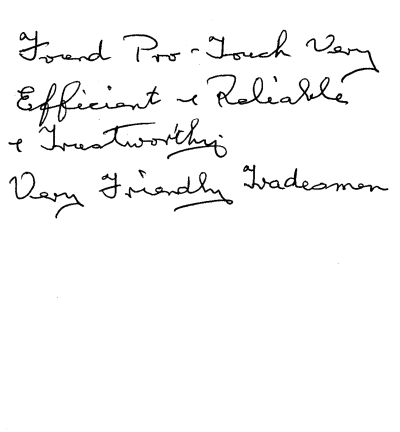 Found Pro-Touch Very
Efficient & Reliable
& Trustworthy
Very Friendly Tradesmen